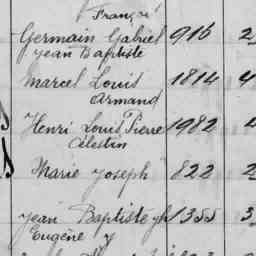 François
Germain Gabriel 916 2
Jean Baptiste
Marcel Louis 1814 4
Armand
Henri Louis Pierre 1982 4
Célestin
Marie Joseph 822 2
Jean Baptiste 1355 3
Eugène